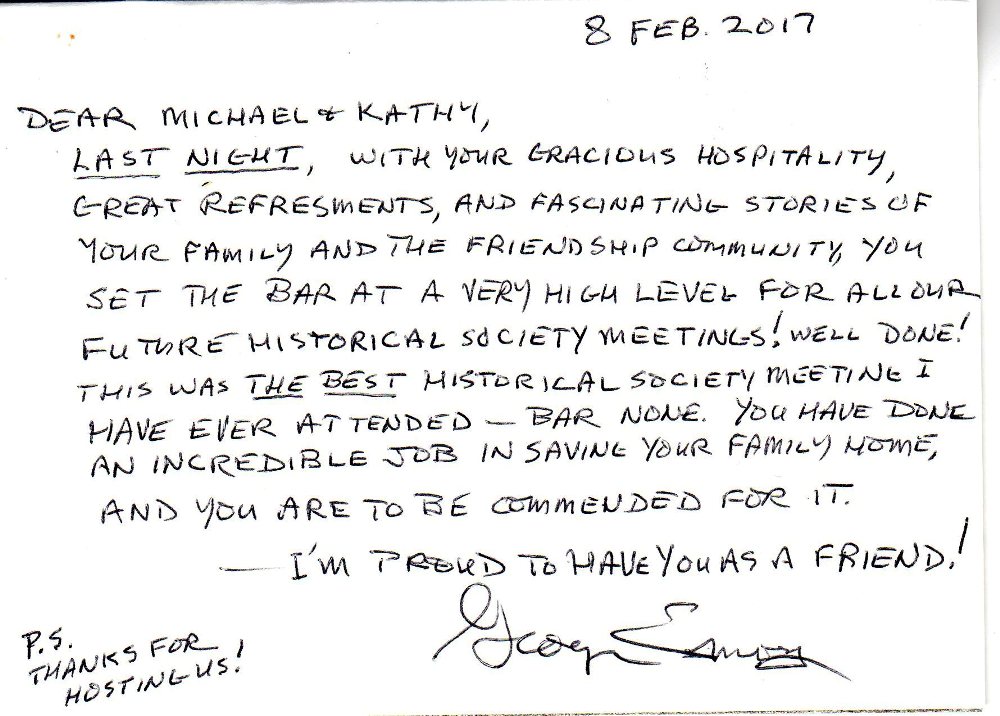 8 FEB. 2017
DEAR MICHAEL & KATHY,
LAST NIGHT, WITH YOUR GRACIOUS HOSPITALITY,
GREAT REFRESMENTS, AND FASCINATING STORIES OF
YOUR FAMILY AND THE FRIENDSHIP COMMUNITY, YOU
SET THE BAR AT A VERY HIGH LEVEL FOR ALL OUR
FUTURE HISTORICAL SOCIETY MEETINGS! WELL DONE!
THIS WAS THE BEST HISTORICAL SOCIETY MEETING I
HAVE EVER ATTENDED — BAR NONE. YOU HAVE DONE
AN INCREDIBLE JOB IN SAVING YOUR FAMILY HOME,
AND YOU ARE TO BE COMMENDED FOR IT.
— I'M PROUD TO HAVE YOU AS A FRIEND!
George
P.S.
THANKS FOR
HOSTING US!